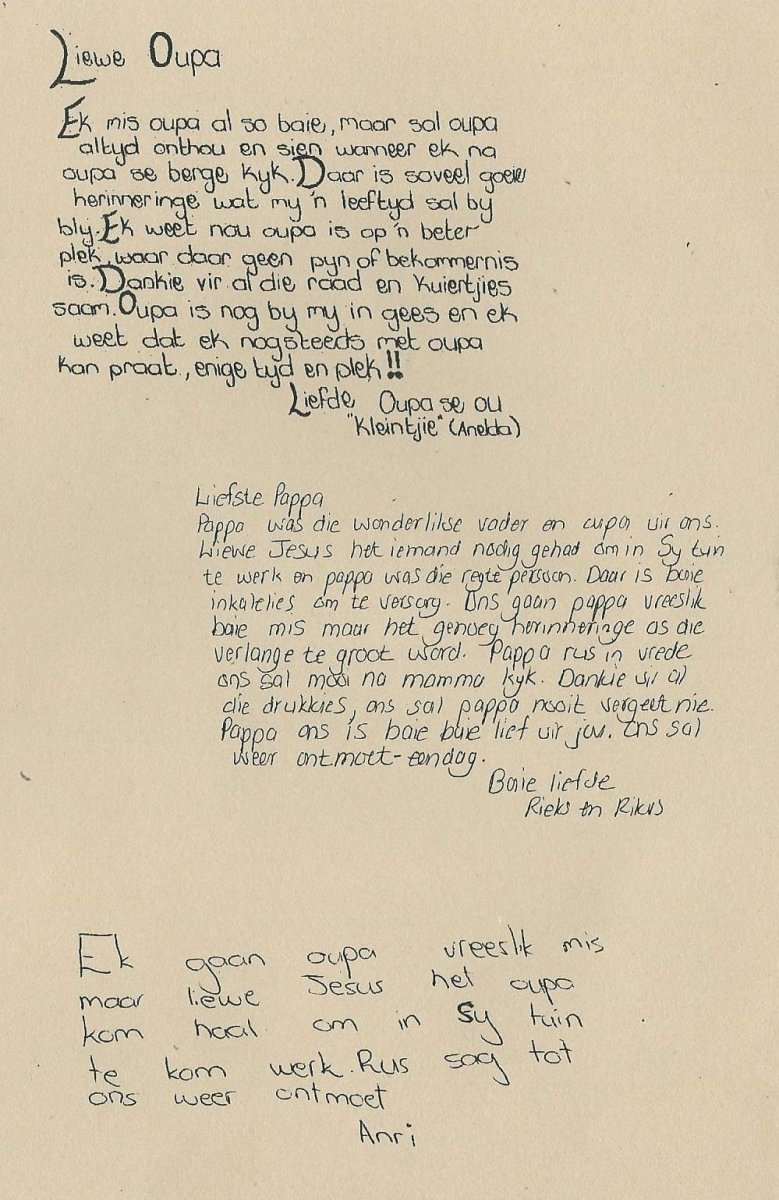 Liewe Oupa
Ek mis oupa al so baie, maar sal oupa
altyd onthou en sien wanneer ek na
oupa se berge kyk. Daar is soveel goeie
herinneringe wat my 'n leeftyd sal by
bly. Ek weet nou oupa is op 'n beter
plek, waar daar geen pyn of bekommernis
is. Dankie vir al die raad en kuiertjies
saam. Oupa is nog by my in gees en ek
weet dat ek nogsteeds met oupa
kan praat, enige tyd en plek!!
Liefde Oupa se ou
"Kleintjie" (Anelda)
Liefste Pappa
Pappa was die wonderlikse vader en oupa vir ons.
Liewe Jesus het iemand nodig gehad om in Sy tuin
te werk en pappa was die regte persoon. Daar is baie
inkalelies om te versorg. Ons gaan pappa vreeslik
baie mis maar het genoeg herinneringe as die
verlange te groot word. Pappa rus in vrede
ons sal mooi na mamma kyk. Dankie vir al
die drukkies, ons sal pappa nooit vergeet nie.
Pappa ons is baie baie lief vir jou. Ons sal
weer ontmoet-eendag.
Baie liefde
Rieks en Rikus
Ek gaan oupa vreeslik mis
maar liewe Jesus het oupa
kom haal om in Sy tuin
te kom werk. Rus sag tot
ons weer ontmoet
Anri